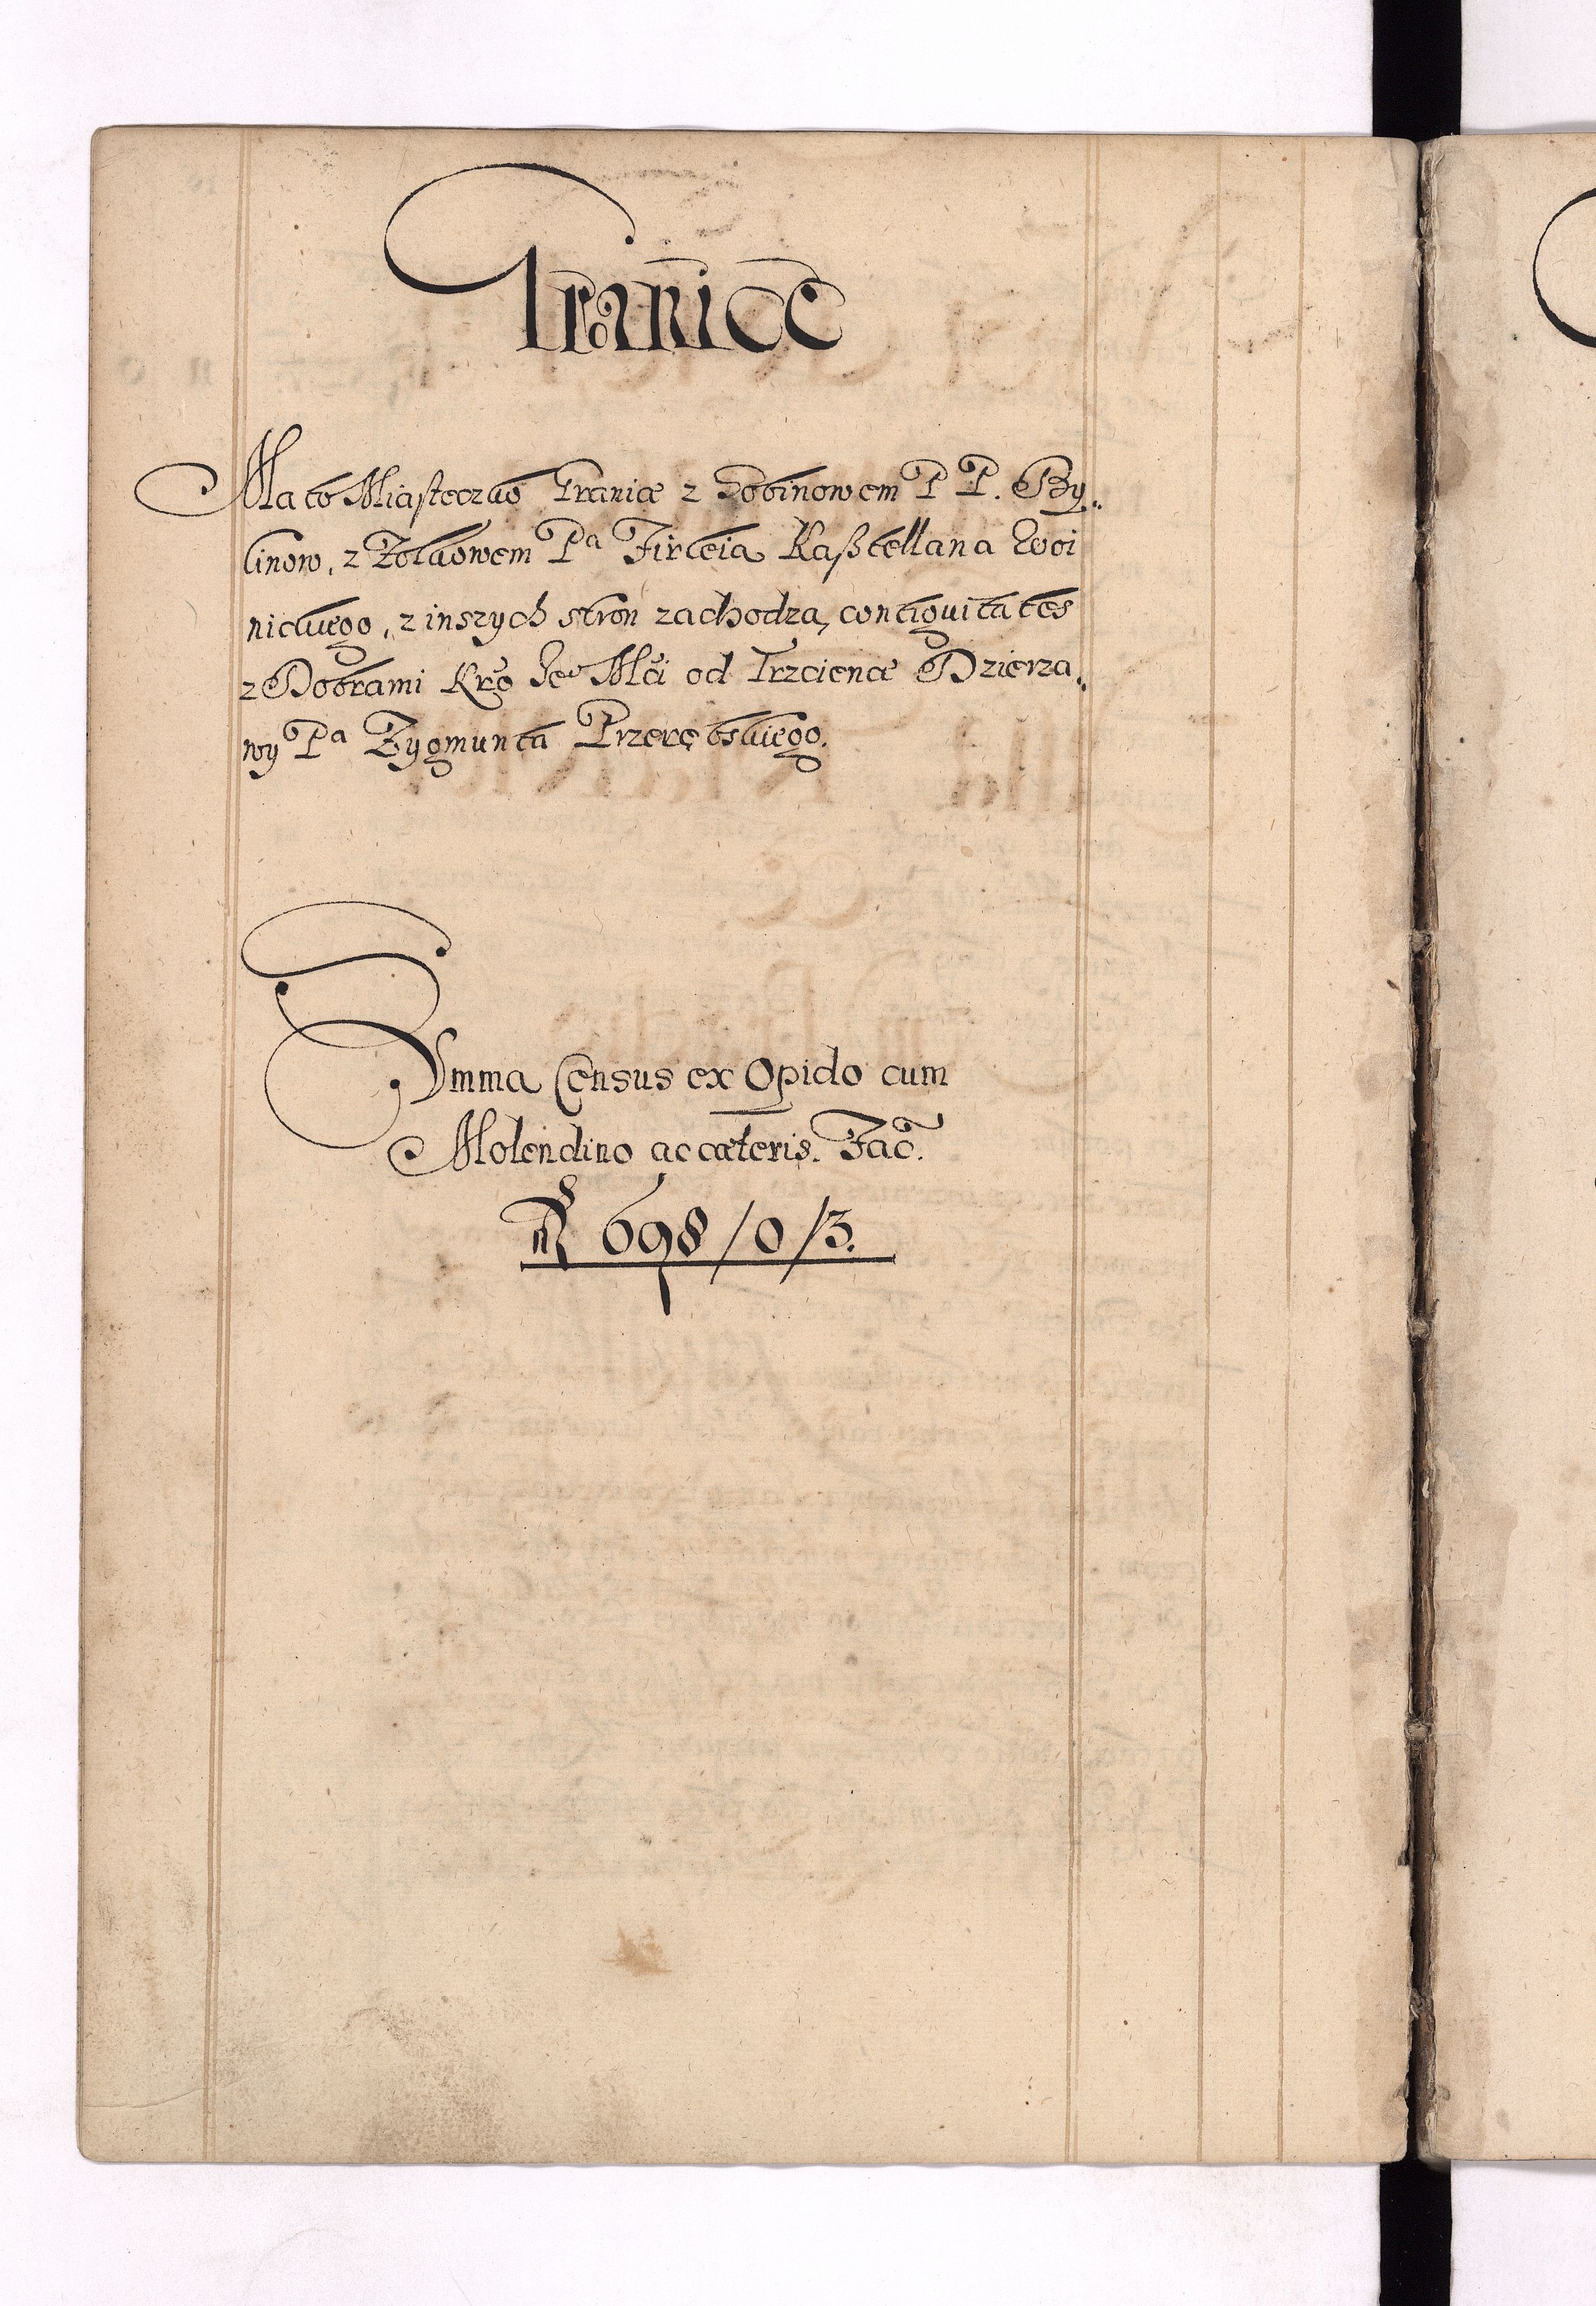 Granice
Ma to Miasteczko Granice z Dobinowem P P. By„
linow, z Zolkowem Pa Firleia Kasztellana Woi
nickiego, z inszych stron zachodzą, contiguitates
z Dobrami Kro Jeo Mći od Trzcience Dzierza„
wy Pa Zygmunta Przerębskiego.
Summa Census ex Opido cum
Molendino ac cæteris. Fac.
698/0/3.